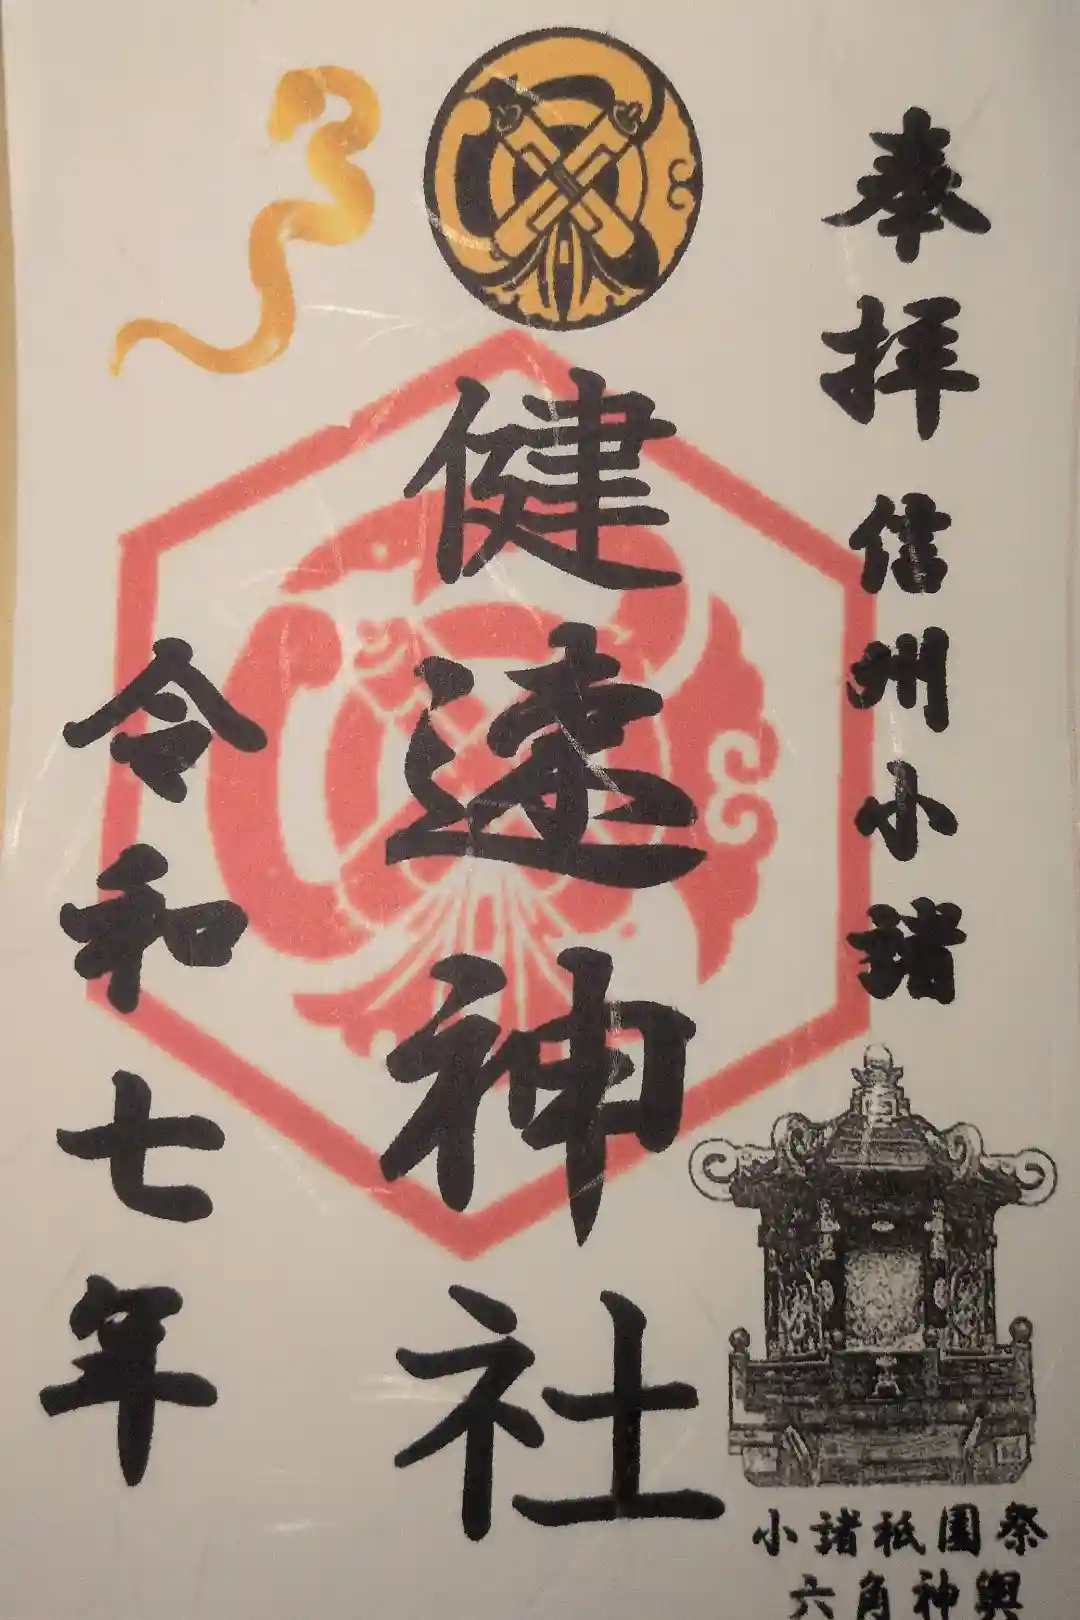 奉拝 信州小諸
健速神社
令和七年
小諸祇園祭
六角神輿